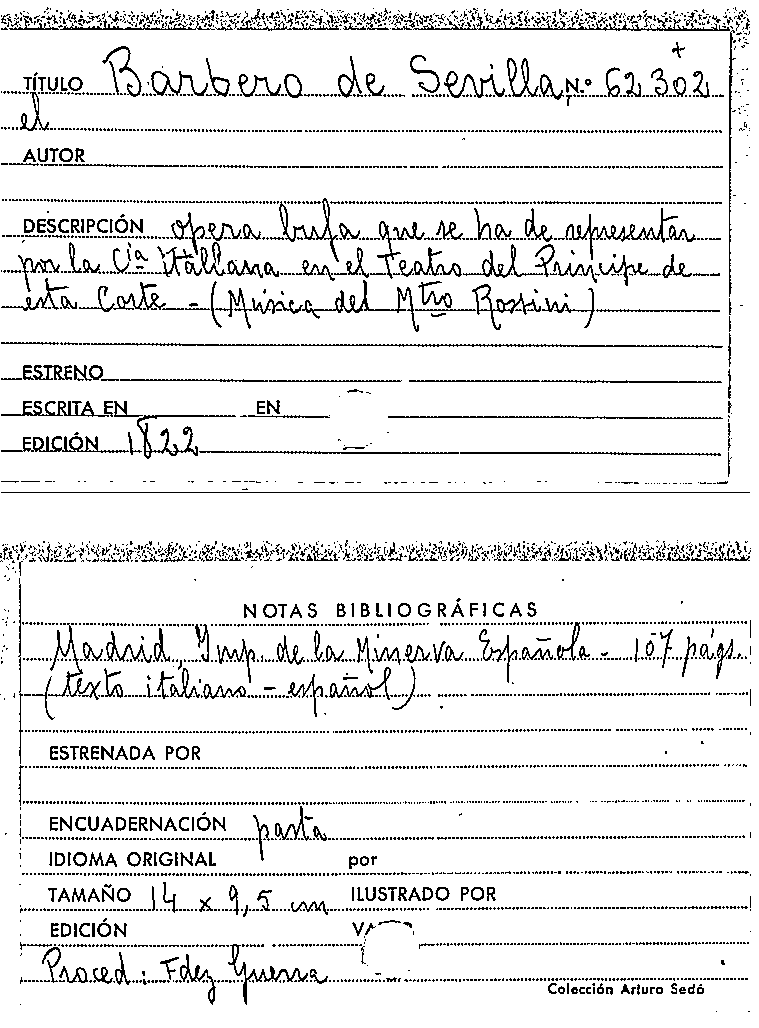 +
TÍTULO Barbero de Sevilla, N.º 62302
el
AUTOR
DESCRIPCIÓN opera bufa que se ha de representar
por la Cía Itallana en el Teatro del Principe de
esta Corte - (Música del Mtro Rossini)
ESTRENO
ESCRITA EN EN
EDICIÓN 1822
NOTAS BIBLIOGRÁFICAS
Madrid, Imp. de la Minerva Española - 107 págs.
(texto italiano - español)
ESTRENADA POR
ENCUADERNACIÓN pasta
IDIOMA ORIGINAL por
TAMAÑO 14 x 9,5 cm ILUSTRADO POR
EDICIÓN
Proced: Fdez Guerra
Colección Arturo Sedó